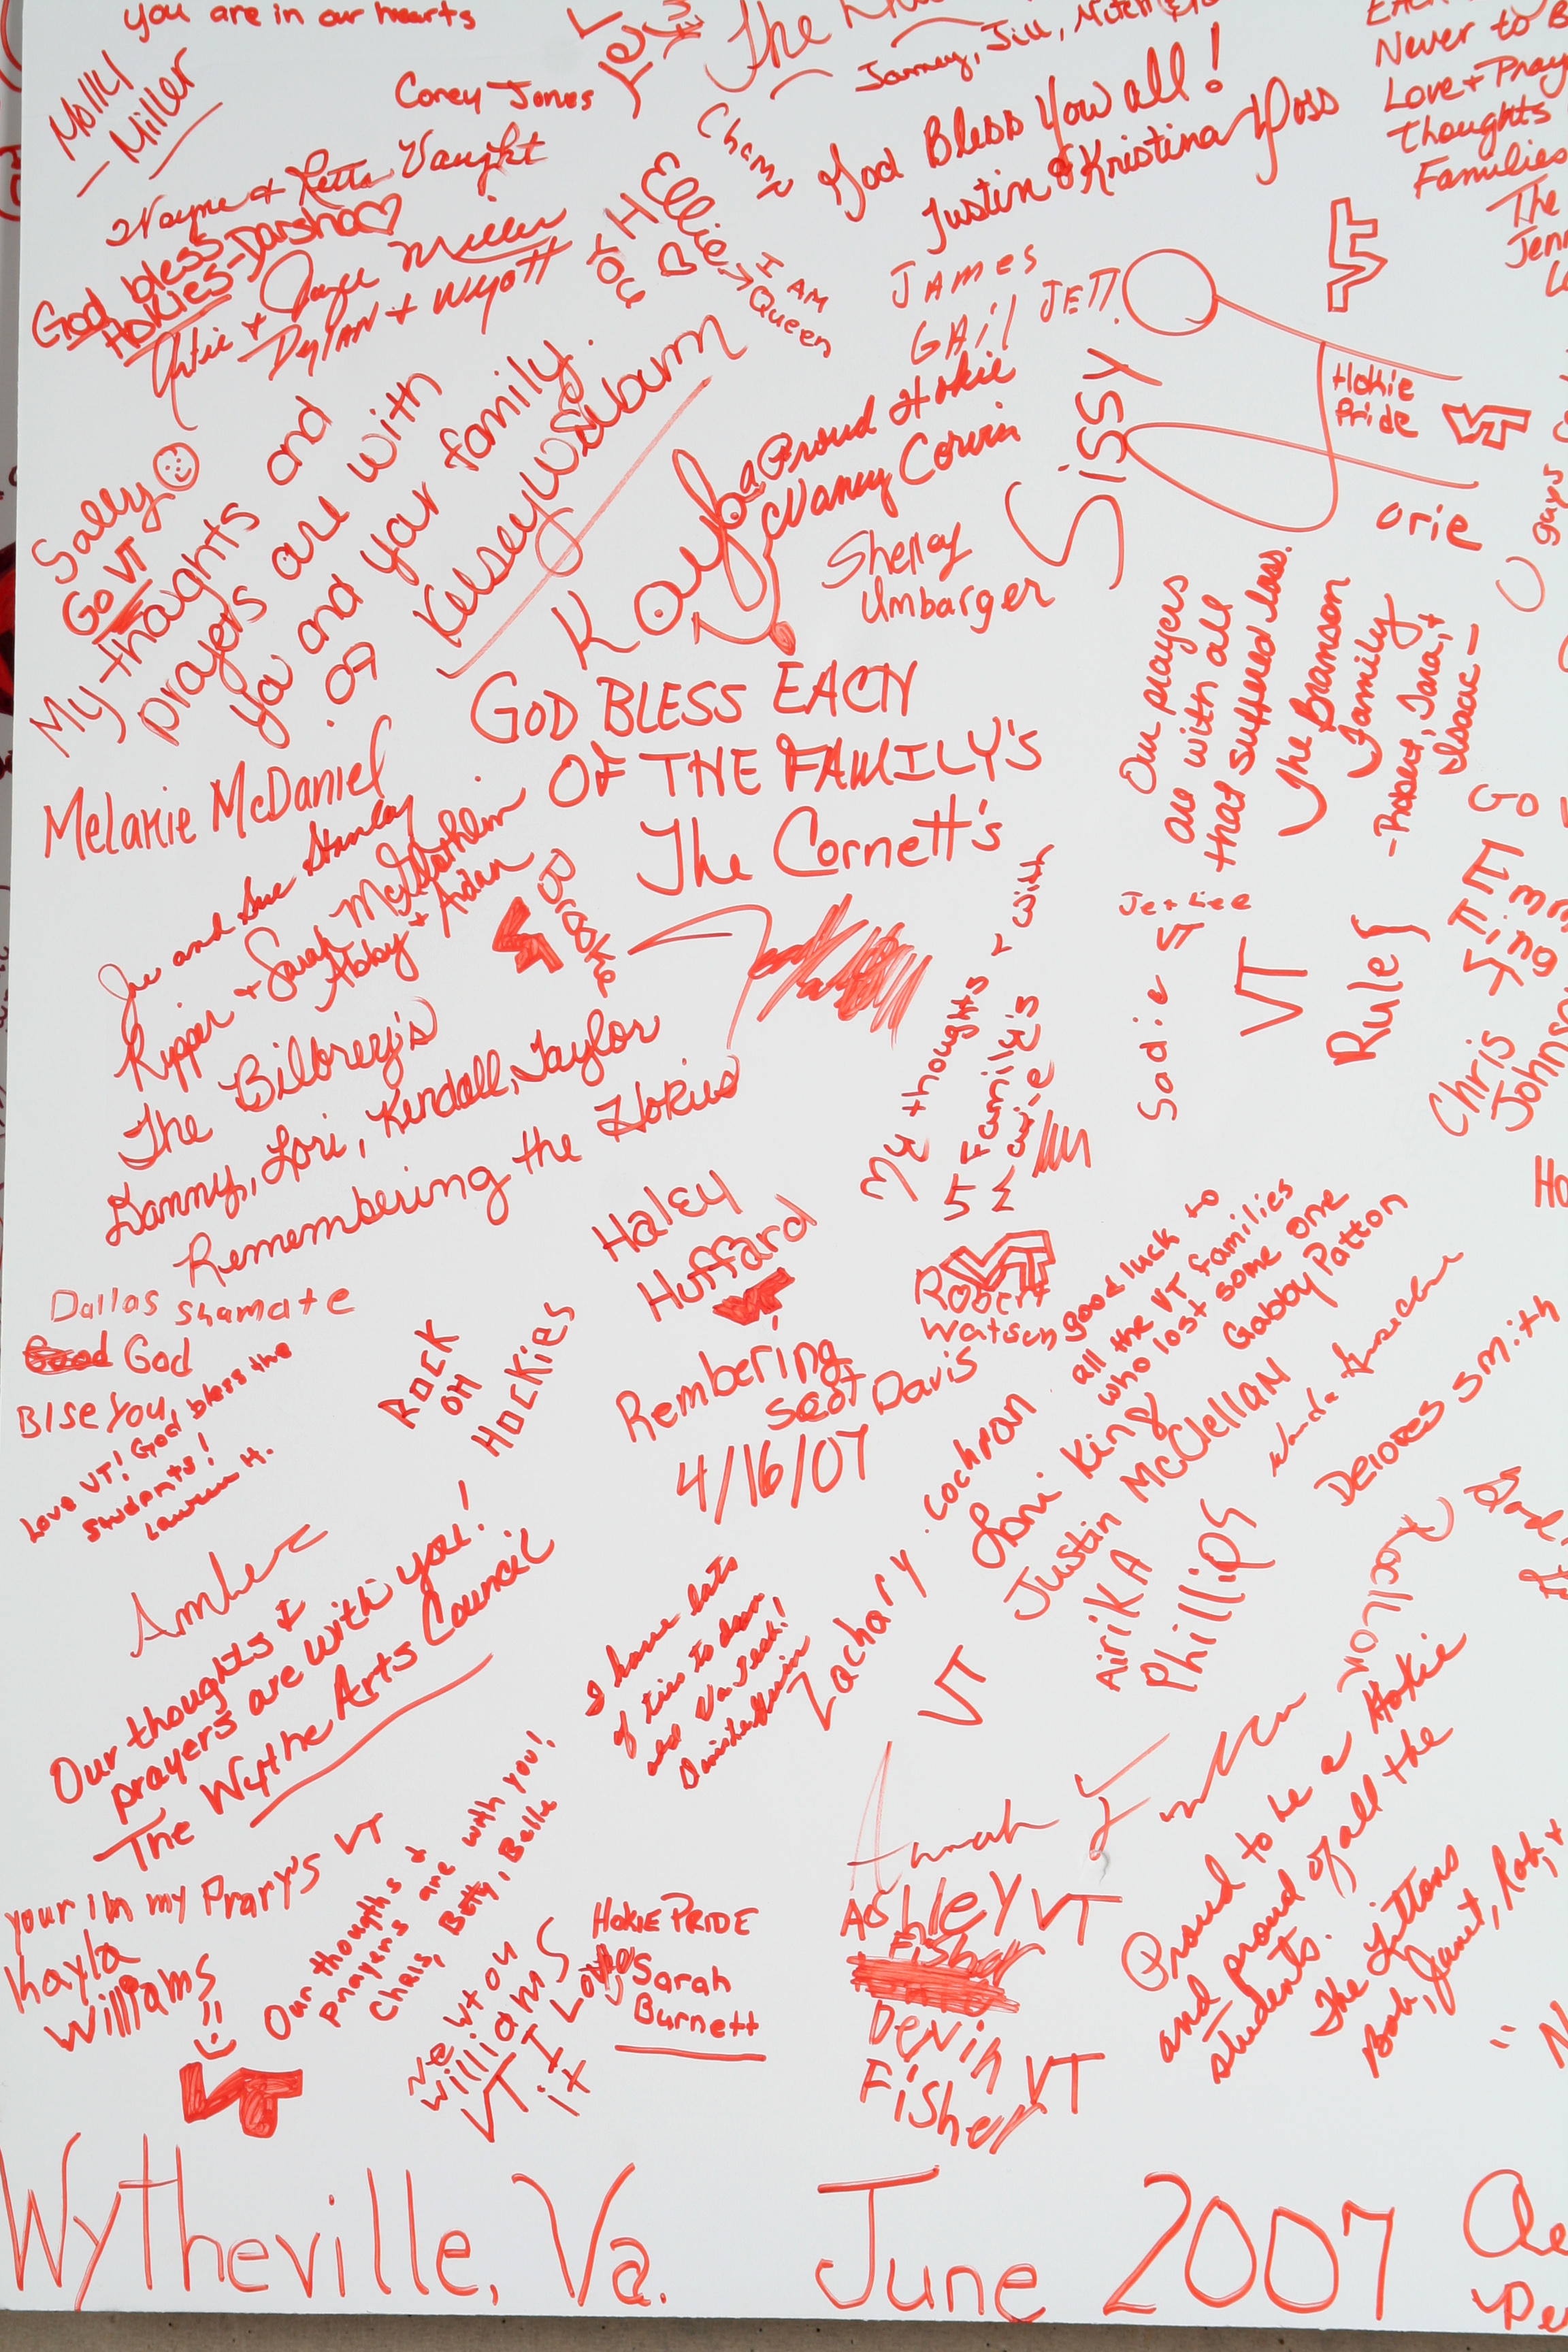 you are in our hearts
Molly
Miller
Corey Jones
The
Love + Pray
Never to B
Thoughts
Families
The
God Bless You all!
Justin & Kristina Yoss
Wayne + Retta Vaught
God bless
Hokies-Darsha♡
Artie + Joyce Miller
Dylan + Wyatt
Ellie
I AM
Queen
JAMES
GAil JETT
Sissy
Hokie
Pride
VT
orie
Sally
Go VT
My thoughts and
prayers are with
you and your family.
Kelsey Wilburn
. 07
Kayla
a Proud Hokie
Nancy Corvin
Shelley
Umbarger
GOD BLESS EACH
OF THE FAMILY'S
The Cornett's
Our prayers
are with all
that suffered loss.
The Branson
Family
-Robert, Tara, +
Isaac-
Melanie McDaniel
Joe and Sue Stanley
Ripper + Sarah McGlothlin
Abby + Aidan
VT
Brooke
The Bilbrey's
Danny, Lori, Kendall, Taylor
Remembering the Hokies
My thoughts r with
Family's
Jet Lee
Sadie VT
VT
Rules
Go
Chris
Johns
Haley
Huffard
VT
VT
Robert
Watson
good luck to
all the VT families
who lost some one
Gabby Patton
Dallas Shamate
Good God
Blse you
Love VT! God bless the
students!
Lauren H.
ROCK
ON
HOCKiES
Rembering
Scot Davis
4/16/07
Zachary Cochran
Lori King
Justin McClellan
AiriKA
Phillips
Delores Smith
VT
Amber
Our thoughts &
prayers are with you!
The Wythe Arts Council
I have lots
of ties to
and Va Tech!
Annah
Proud to be a Hokie
and proud of all the
students.
The Littons
Bob, Janet, Rob, +
your i'm my Prary's VT
Kayla
Williams
VT
Our thougths +
prayers are with you!
Chris, Betty, Belle
Newton
Williams
VT I Love
it
HOKIE PRIDE
Sarah
Burnett
Ashley VT
Fisher
Devin
Fisher VT
Wytheville, Va. June 2007